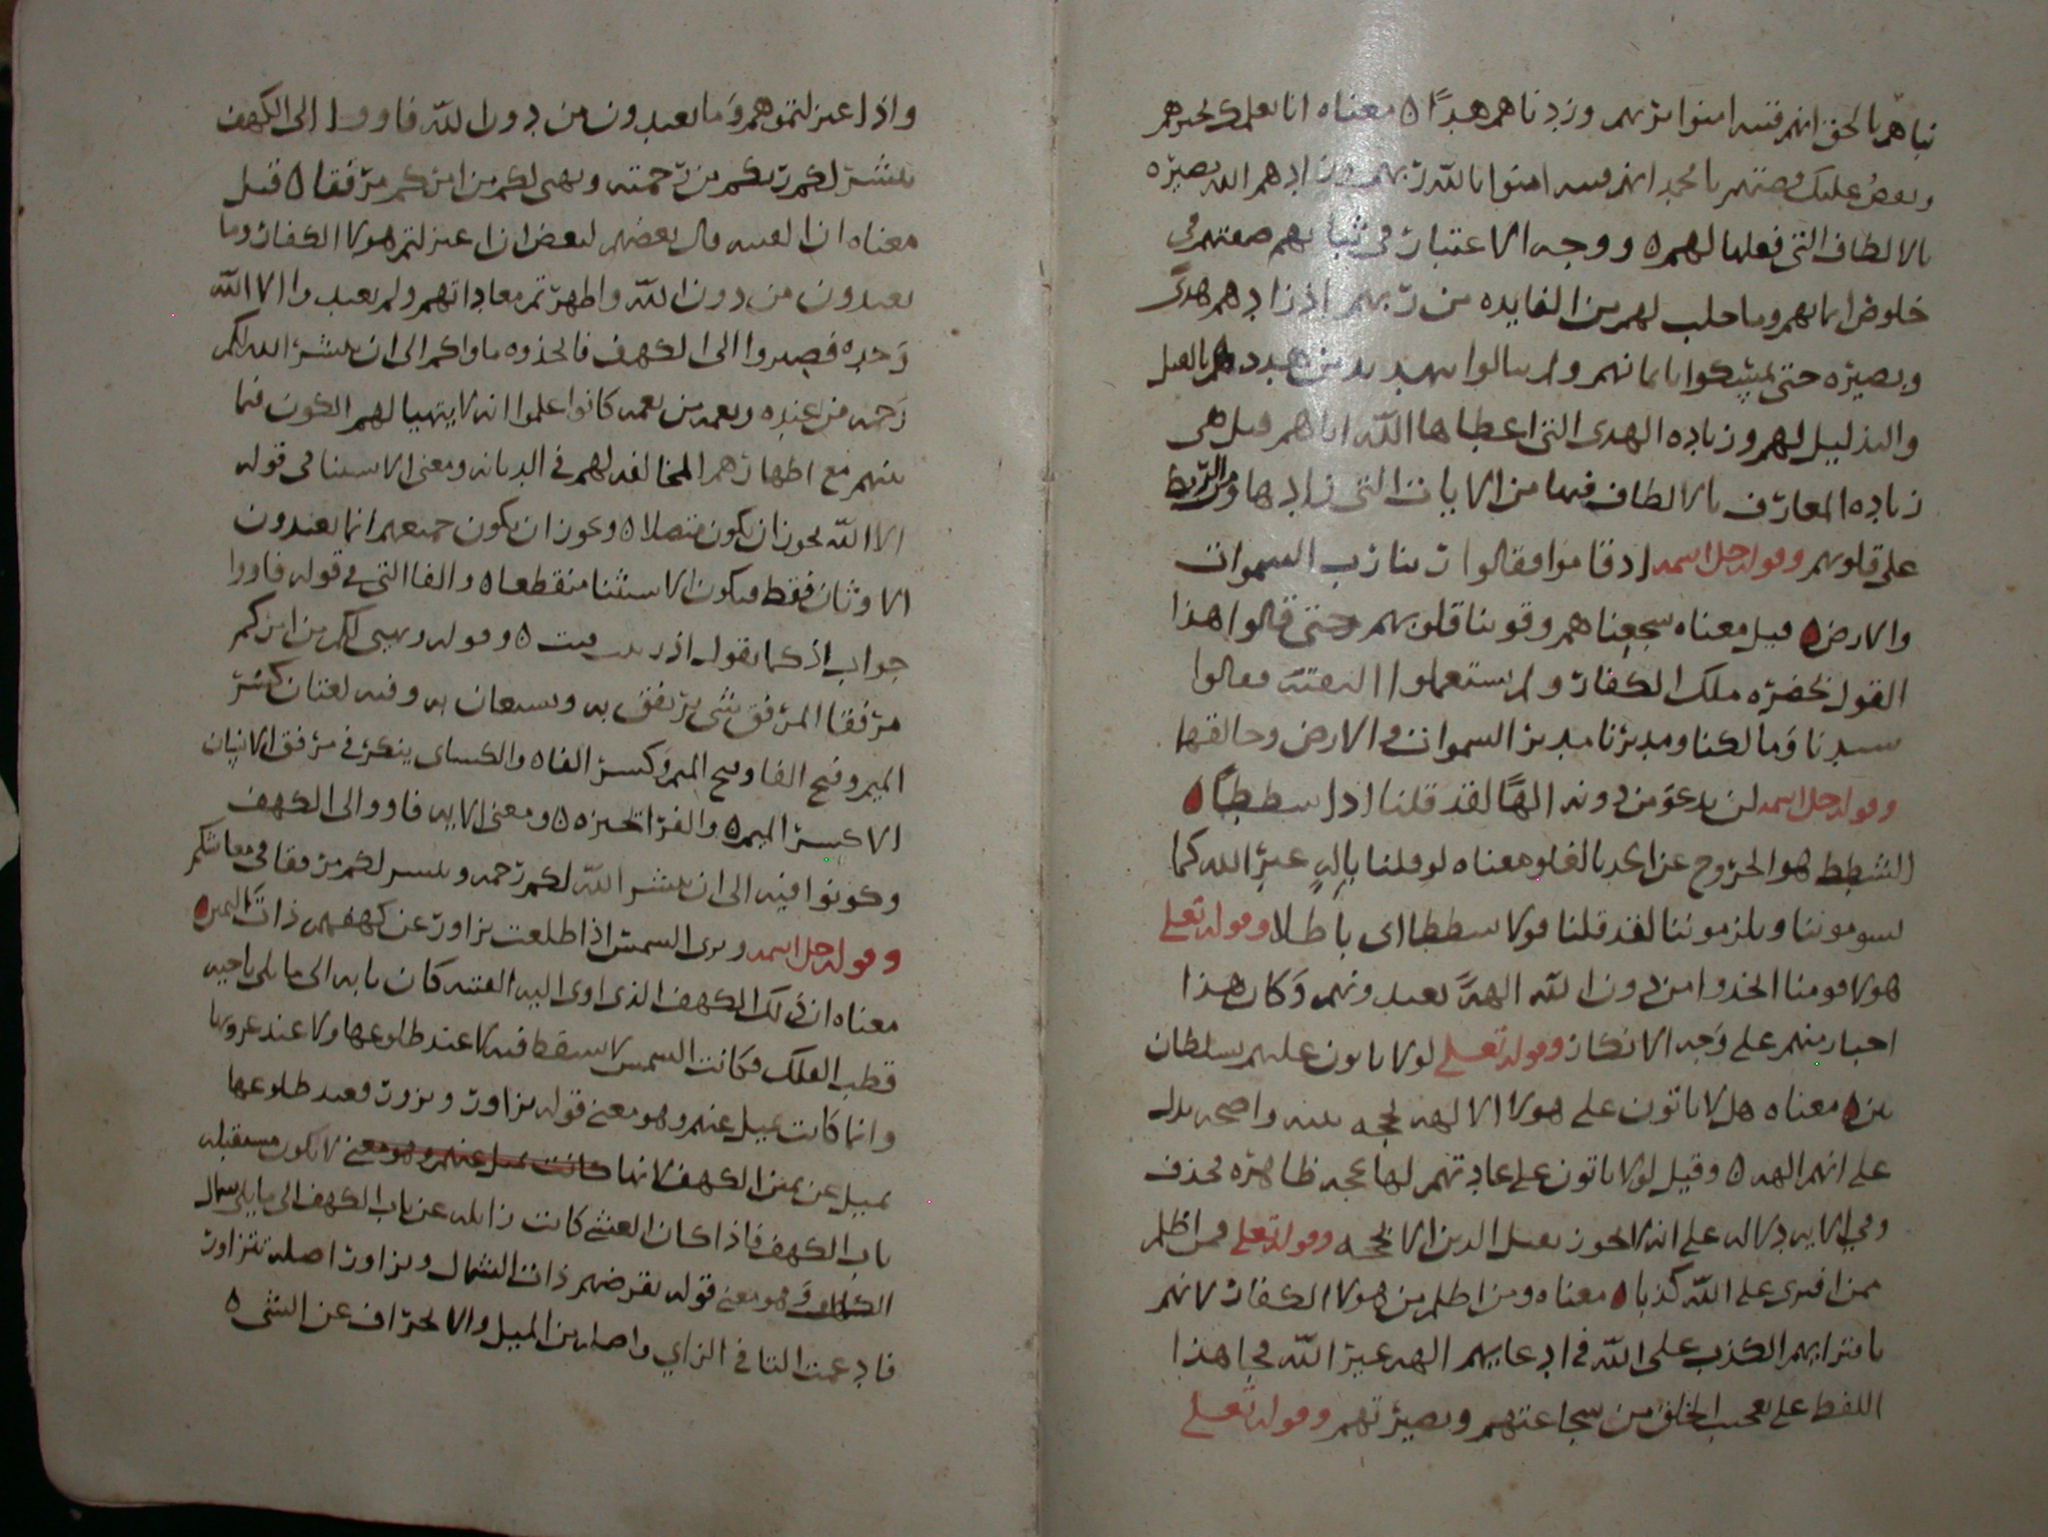 نباهم بالحق انهم فتية امنوا بربهم وزدناهم هدًا ه معناه انا نعلمك خبرهم
ونقصُ عليك قصتهم يا محمد انهم فتيه امنوا بالله ربهم وزادهم الله بصيره
بالالطاف التى فعلها لهم ه ووجه الاعتبار فى نباهم صفتهم فى
خلوص ايمانهم وما جلب لهم من الفايده من ربهم اذ زادهم هدًى
وبصيره حتى تمسكوا بايمانهم ولم يبالوا بتهديد من هددهم بالقتل
والتذليل لهم وزياده الهدى التى اعطاها الله اياهم قيل هى
زياده المعارف بالالطاف فيها من الايات التى زادها ومن الربط
على قلوبهم وقوله جل اسمه اذ قاموا فقالوا ربنا رب السموات
والارض ه قيل معناه شجعناهم وقوينا قلوبهم حتى قالوا هذا
القول بحضره ملك الكفار ولم يستعملوا التقيه فقالوا
سيدنا وَمالكنا ومدبرنا مدبر السموات والارض وخالقها
وقوله جل اسمه لن ندعوَ من دونه الهًا لقد قلنا اذا شططًا ه
الشطط هو الخروج عن الحد بالغلو معناه لو قلنا بِالهٍ غيرِ الله كما
تسوموننا وتلزموننا لقد قلنا قولا شططا اى باطلا وقوله تعلى
هولا قومنا اتخذوا من دون الله الهةً يعبدونهم وَكان هذا
اخبار منهم على وَجه الانكار وقوله تعلى لولا ياتون عليهم بسلطان
بين ه معناه هل لا ياتون على هولا الالهه بحجه بينه واضحه تدل
على انهم الهه ه وقيل لولا ياتون على عبادتهم لها بحجه ظاهره فحذف
وفي الايه دلاله على انه لا يجوز تقبل الدين الا بحجه وقوله تعلى فمن اظلم
ممن افترى على الله كذبا ه معناه ومن اظلم من هولا الكفار لانهم
بافترايهم الكذب على الله فى ادعايهم الهه غير الله فجا هذا
اللفظ على تعجب الخلق من شجاعتهم وبصيرتهم وقوله تعلى
واذ اعتزلتموهم وَما يعبدون من دون الله فاووا الى الكهف
ينشر لكم ربكم من رحمته ويهيى لكم من امركم مرفقا ه قيل
معناه ان الفتيه قال بعضهم لبعض ان اعتزلتم هولا الكفار وما
يعبدون من دون الله واظهرتم معاداتهم ولم تعبدوا الا الله
وَحده فصيروا الى الكهف فاتخذوه ماواكم الى ان ينشر الله لكم
رَحمه من عنده ونعمه من نعمه كانوا علموا انه لا يتهيا لهم الكون فيما
بينهم مع اظهارهم المخالفه لهم فى الديانه ومعنى الاستثنا فى قوله
الا الله يجوز ان يكون متصلا ه ويجوز ان يكون جميعهم انما يعبدون
الاوثان فقط فيكون الاستثنا منقطعا ه والفا التى فى قوله فاووا
جواب اذ كما تقول اذ فعلت ه وقوله ويهيى لكم من امركم
مرفقا المرفق شى يرتفق به ويستعان به وفيه لغتان كسر
الميم وفتح الفا وفتح الميم وَكسر الفا ه والكساى ينكر فى مرفق الانسان
الا كسر الميم ه والفرا يجيزه ه ومعنى الايه فاووا الى الكهف
وكونوا فيه الى ان ينشر الله لكم رَحمه وييسر لكم مرفقا فى معاشكم
وقوله جل اسمه وترى الشمس اذا طلعت تزاور عن كهفهم ذات اليمين ه
معناه ان ذلك الكهف الذى اوى اليه الفتيه كان بابه الى ما يلى ناحيه
قطب الفلك فكانت الشمس لا تسقط فيه لا عند طلوعها ولا عند غروبها
وانما كانت تميل عنهم وهو معنى قوله تزاور وتزور فعند طلوعها
تميل عن يمين الكهف لانها كانت تميل عنهم وهو معنى لا تكون مستقبله
باب الكهف فاذا كان العشى كانت زايله عن باب الكهف الى ما يلى شمال
الكهف وَهو معنى قوله تقرضهم ذات الشمال وتزاور اصله تتزاور
فادغمت التا فى الزاي واصله من الميل والانحراف عن الشى ه